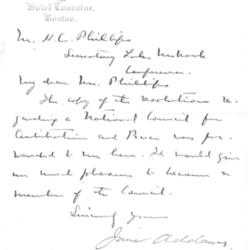 Hotel Touraine,
Boston.
Mr. H. C. Phillips
Secretary Lake Mohonk
Conference.
My dear Mr. Phillips
The copy of the resolutions re-
garding a National Council for
Arbitration and Peace was for-
warded to me here. It would give
me much pleasure to become a
member of the Council.
Sincerely yours
Jane Addams